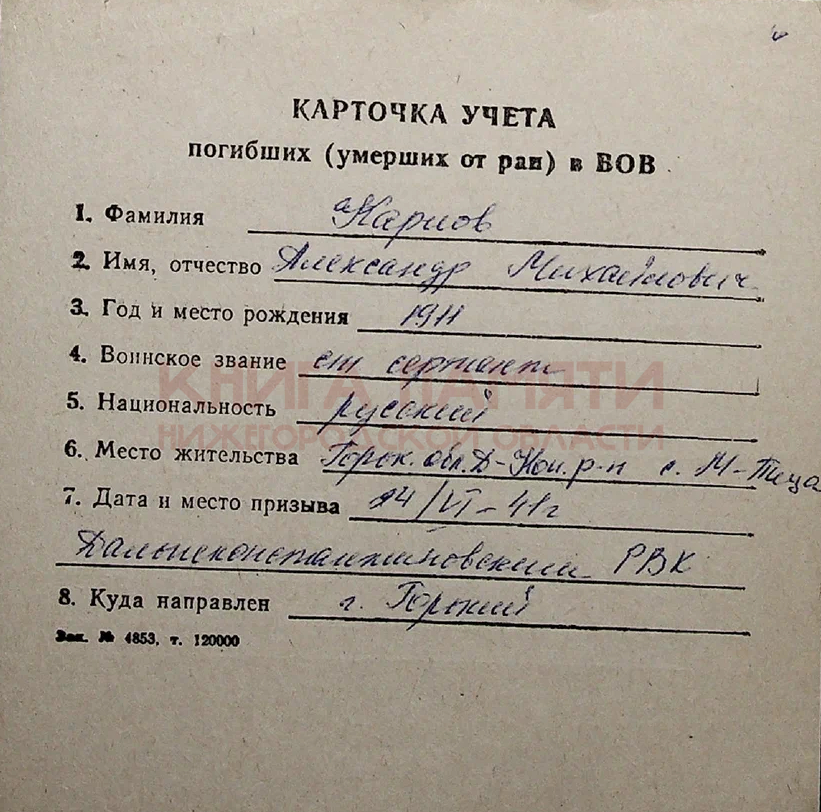 КАРТОЧКА УЧЕТА
погибших (умерших от ран) в ВОВ
1. Фамилия Карпов
2. Имя, отчество Александр Михайлович
3. Год и место рождения 1911
4. Воинское звание ст сержант
5. Национальность русский
КНИГА ПАМЯТИ
НИЖЕГОРОДСКОЙ ОБЛАСТИ
6. Место жительства Горьк. обл. Д-Кон. р-н с. М-Пица
7. Дата и место призыва 24/VI-41г
Дальнеконстантиновский РВК
8. Куда направлен г. Горький
Зак. № 4853, т. 120000